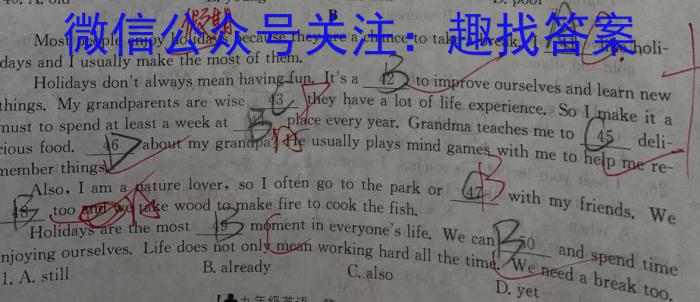 B
微信公众号关注：趣找答案
Most people enjoy holidays because they are a chance to take holi-
days and I usually make the most of them.
Holidays don't always mean having fun. It's a 42 to improve ourselves and learn new
things. My grandparents are wise 43 they have a lot of life experience. So I make it a
must to spend at least a week at place every year. Grandma teaches me to 45 deli-
cious food. 46 about my grandpa? He usually plays mind games with me to help me re-
member things.
Also, I am a nature lover, so I often go to the park or 47 with my friends. We
48 too and we take wood to make fire to cook the fish.
Holidays are the most 49 moment in everyone's life. We can 50 and spend time
njoying ourselves. Life does not only mean working hard all the time. We need a break too.
1. A. still B. already C. also D. yet
九年级英语